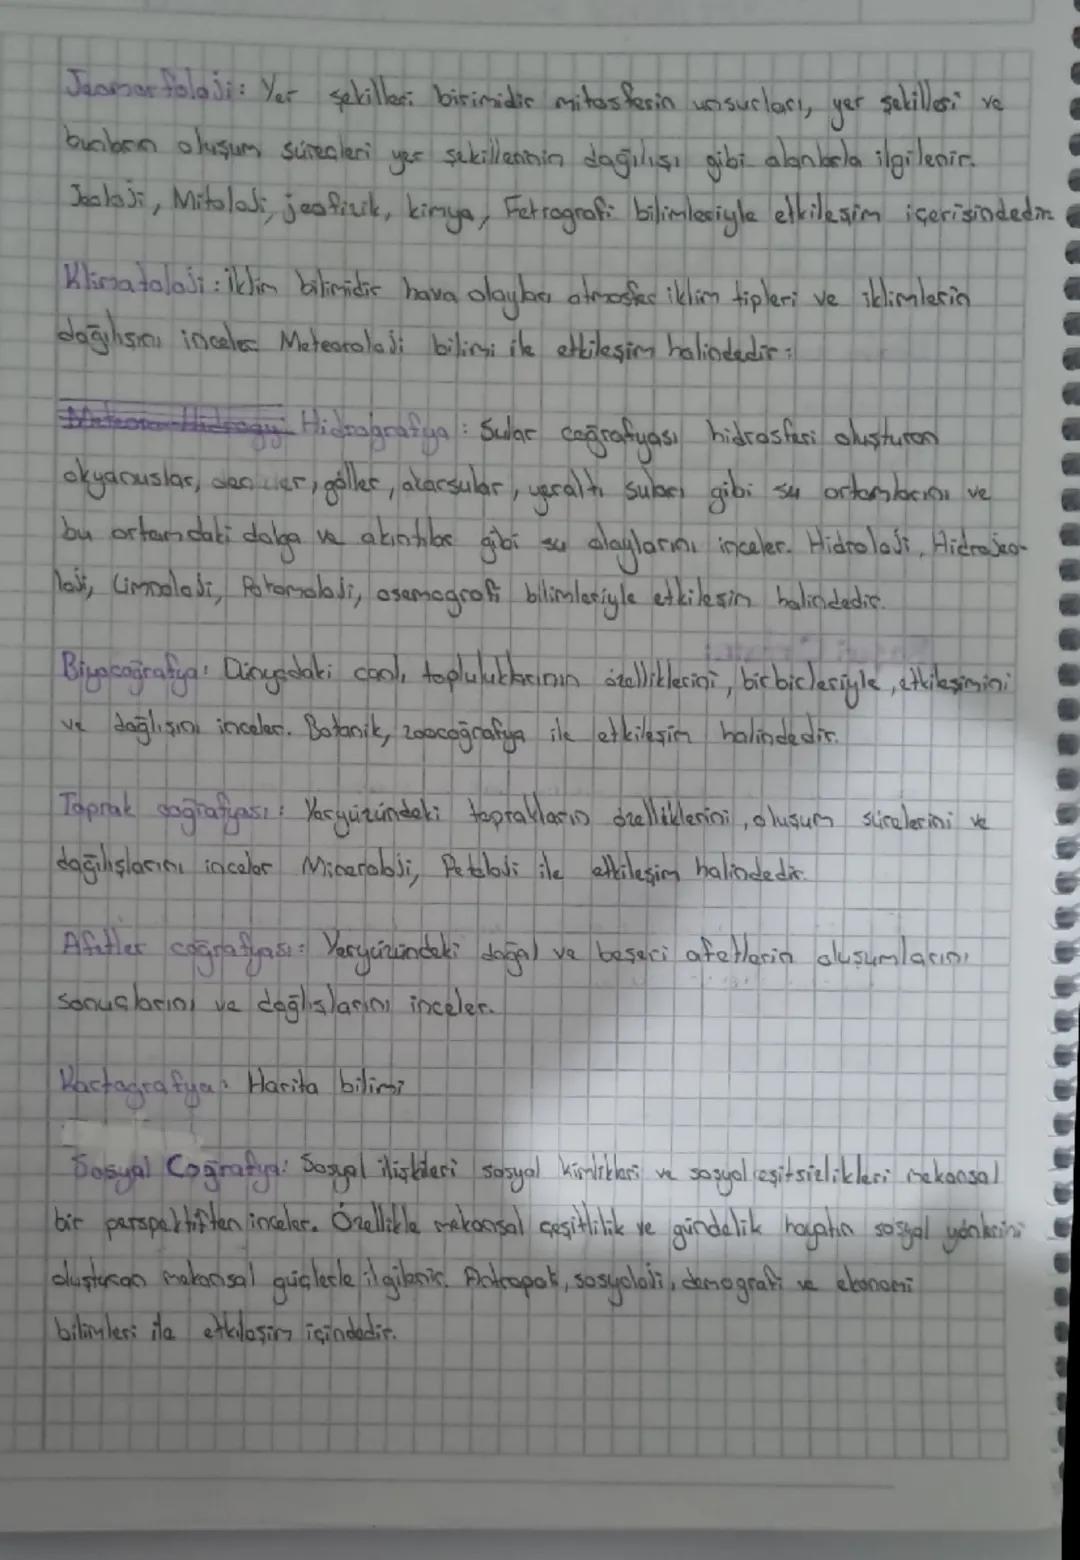 Jeomorfoloji: Yer şekilleri birimidir mitosferin unsurları, yer şekilleri ve
bunların oluşum süreçleri yer şekillerinin dağılışı gibi alanlarla ilgilenir.
Jeoloji, Mitoloji, jeofizik, kimya, Fetrografi bilimleriyle etkileşim içerisindedir
Klimatoloji: iklim bilimidir hava olayları atmosfer iklim tipleri ve iklimlerin
dağılışını inceler Meteoroloji bilimi ile etkileşim halindedir:
Hidrografya: Sular coğrafyası hidrosferi oluşturan
okyanuslar, denizler, göller, akarsular, yeraltı suları gibi su ortamlarını ve
bu ortamdaki dalga ve akıntılar gibi su olaylarını inceler. Hidroloji, Hidrojeo-
loji, Limnoloji, Potomoloji, osemografi bilimleriyle etkileşim halindedir.
Biyocoğrafya: Dünyadaki canlı topluluklarının özelliklerini, birbirleriyle, etkileşimini
ve dağlışını inceler. Botanik, zoocoğrafya ile etkileşim halindedir.
Toprak coğrafyası: Yeryüzündeki toprakların özelliklerini, oluşum sürelerini ve
dağılışlarını inceler Mineroloji, Petoloji ile etkileşim halindedir.
Afetler coğrafyası: Yeryüzündeki doğal ve beşeri afetlerin oluşumlarını
sonuçlarını ve dağlışlarını inceler.
Kartografya: Harita bilimi
Sosyal Coğrafya: Sosyal ilişkileri sosyal kimlikleri ve sosyal eşitsizlikleri mekansal
bir perspektiften inceler. Özellikle mekansal çeşitlilik ve gündelik hayatın sosyal yönlerini
oluşturan mekansal güçlerle ilgilenir. Antropol, sosyoloji, demografi ve ekonomi
bilimleri ile etkileşim içindedir.